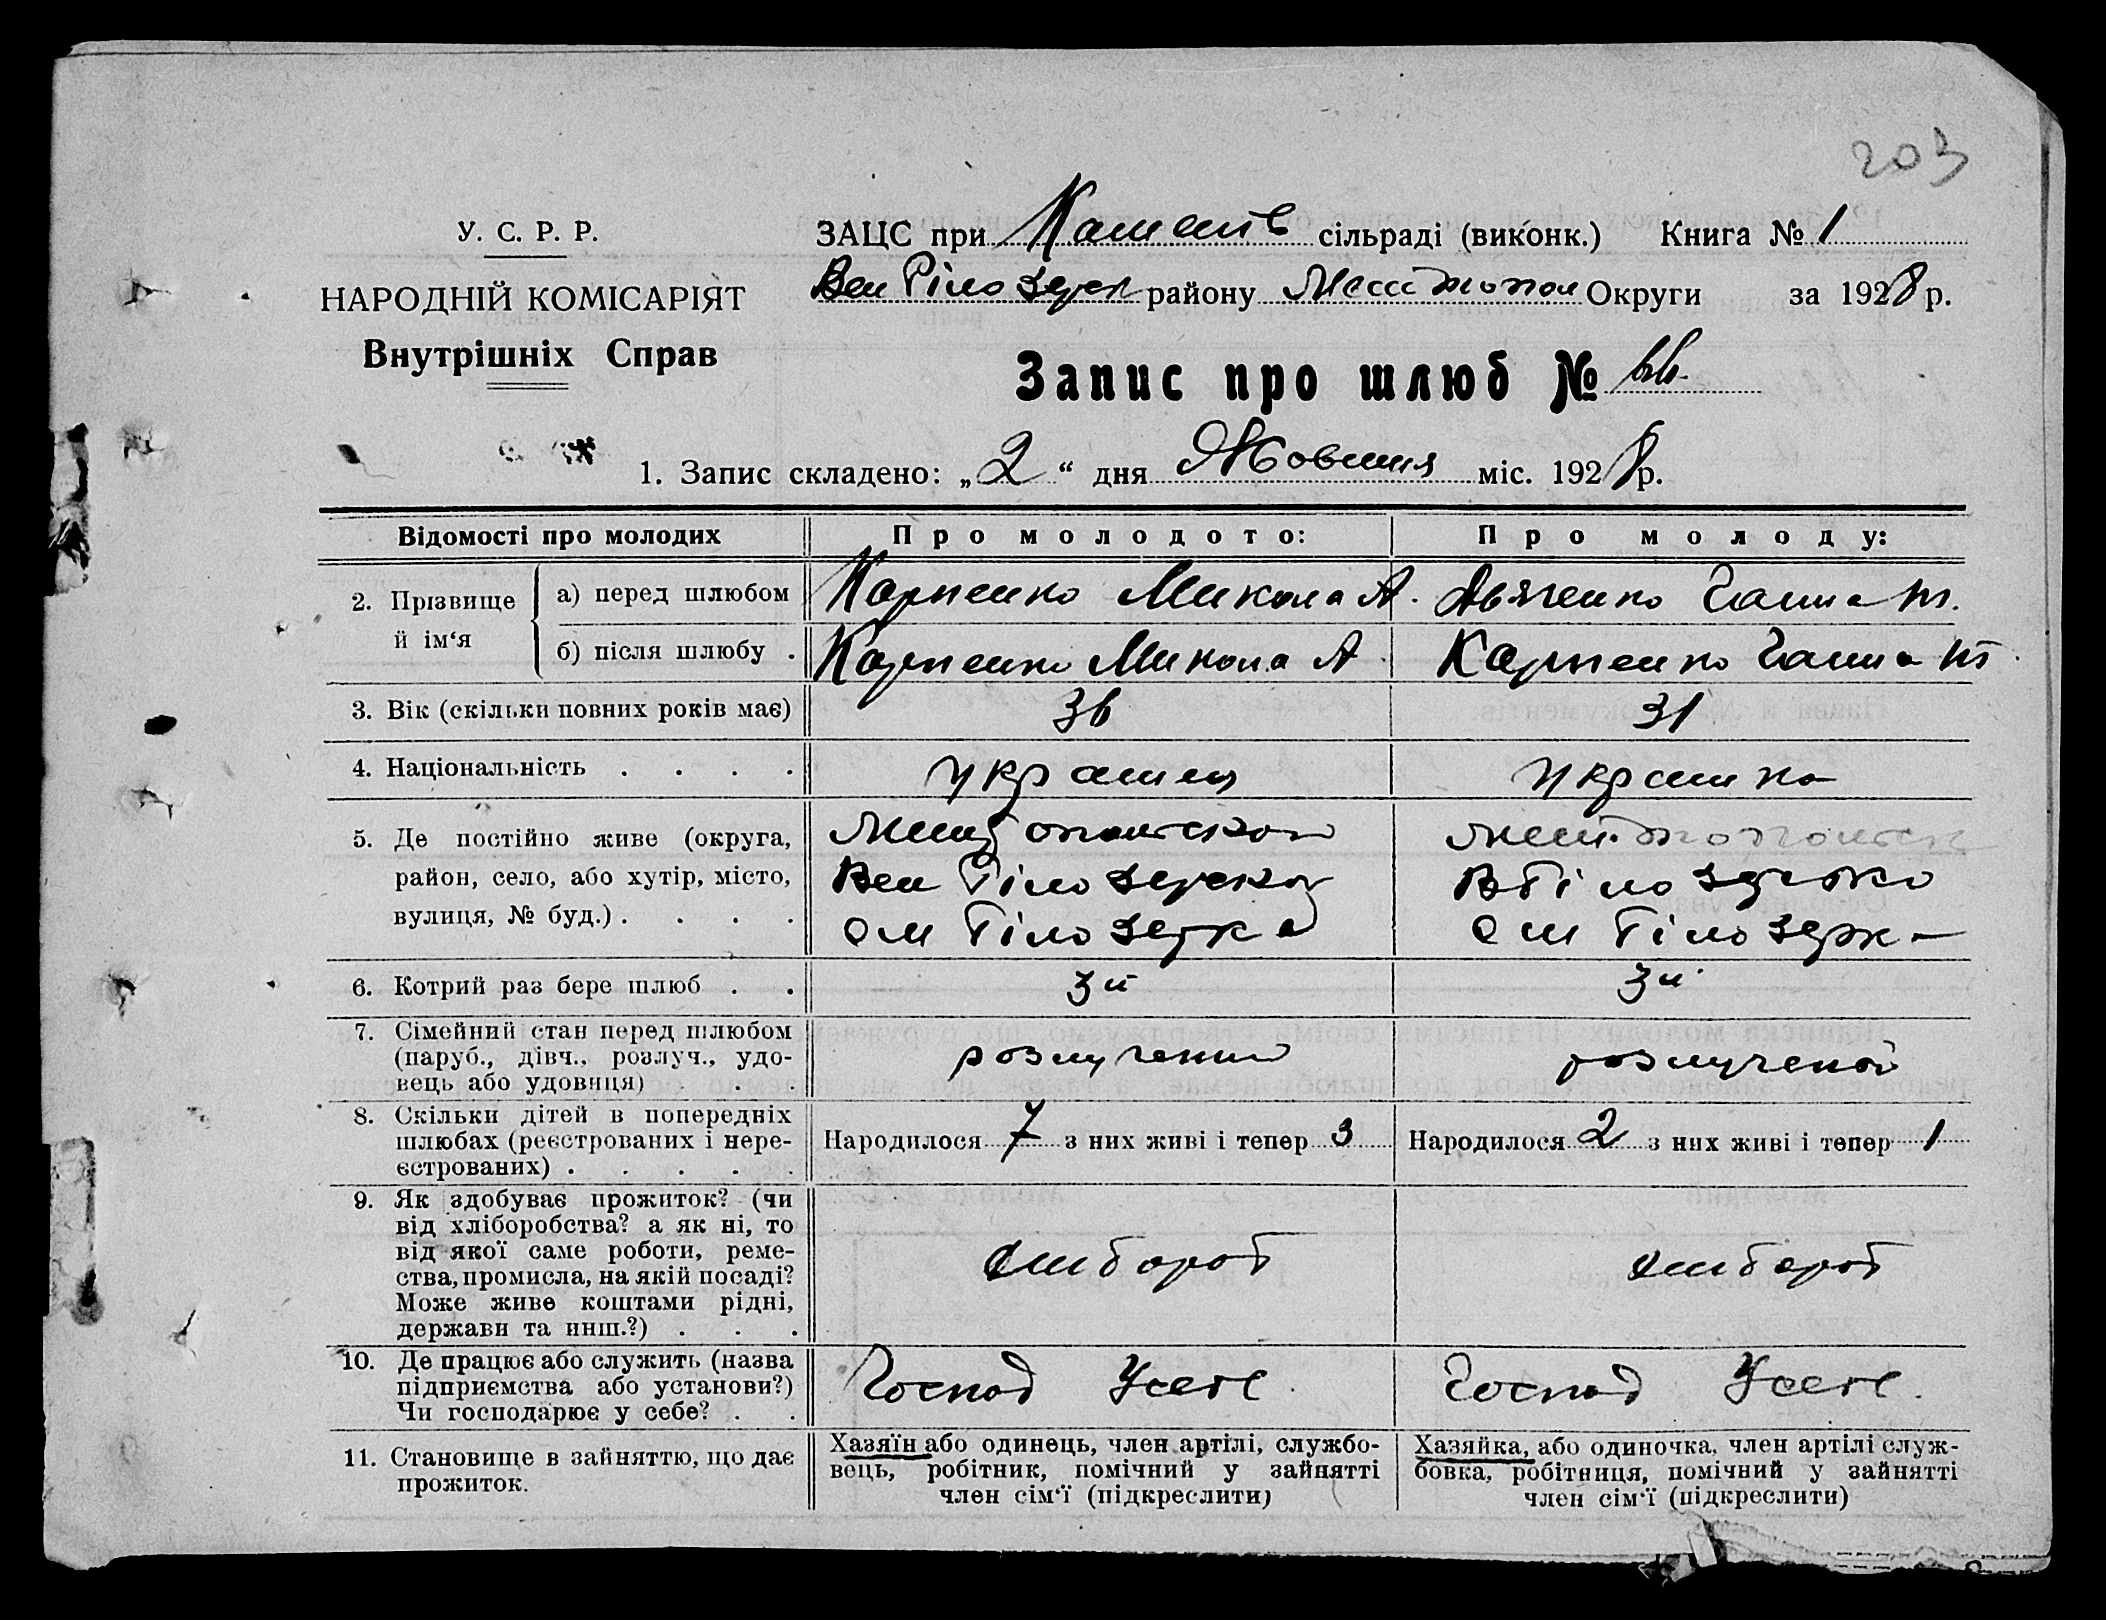 203
У. С. Р. Р.
НАРОДНІЙ КОМІСАРІЯТ
Внутрішніх Справ
ЗАЦС при сільраді (виконк.) Книга № 1
Вел Білозерськ району Мелітопол Округи за 1928 р.
Запис про шлюб № 66
1. Запис складено: „2“ дня Жовтня міс. 1928 р.
Відомості про молодих Про молодого: Про молоду:
2. Прізвище й ім‘я
а) перед шлюбом Карпенко Микола А. Дьяченко Ганна
б) після шлюбу . Карпенко Микола А Карпенко Ганна
3. Вік (скільки повних років має) 36 31
4. Національність . . . . украинец украинка
5. Де постійно живе (округа,
район, село, або хутір, місто,
вулиця, № буд.) . . . .
Вел Білозерской
Білозерка
Білозерка
6. Котрий раз бере шлюб . . 3й 3й
7. Сімейний стан перед шлюбом
(паруб., дівч., розлуч., удо-
вець або удовиця) . .
розлучений розлученой
8. Скільки дітей в попередніх
шлюбах (реєстрованих і нере-
єстрованих) . . . . .
Народилося 7 з них живі і тепер 3 Народилося 2 з них живі і тепер 1
9. Як здобуває прожиток? (чи
від хліборобства? а як ні, то
від якої саме роботи, реме-
ства, промисла, на якій посаді?
Може живе коштами рідні,
держави та инш.?) . . .
хлибороб хлибороб
10. Де працює або служить (назва
підприємства або установи?)
Чи господарює у себе? . .
Господ Усебе Господ Усебе.
11. Становище в зайняттю, що дає
прожиток.
Хазяїн або одинець, член артілі, службо-
вець, робітник, помічний у зайнятті
член сім‘ї (підкреслити)
Хазяйка, або одиночка, член артілі служ-
бовка, робітниця, помічний у зайнятті
член сім‘ї (підкреслити)